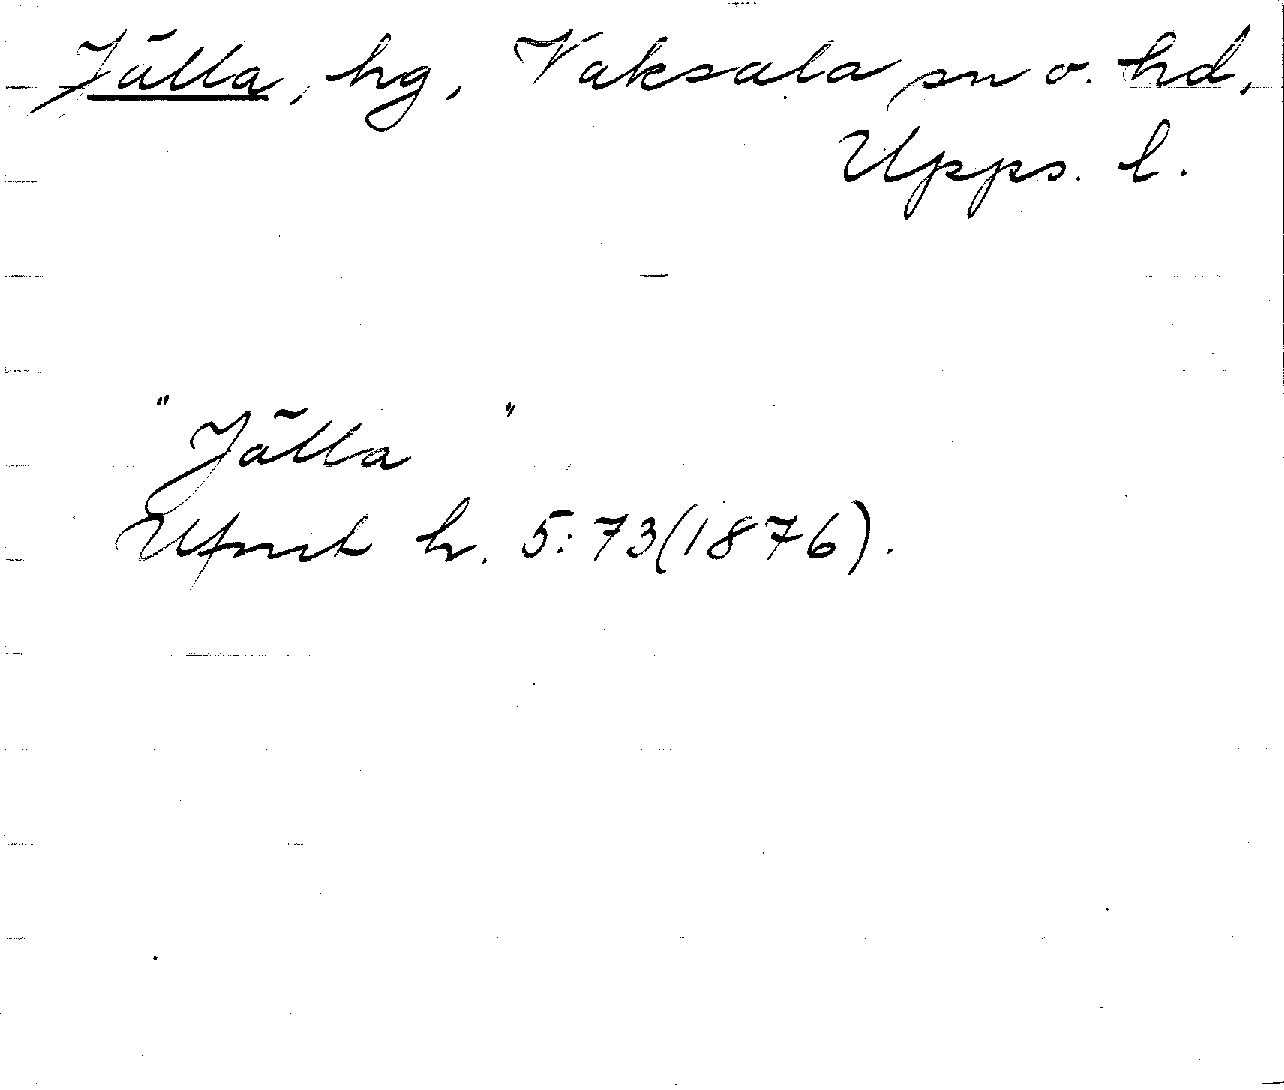 Jälla, hg, Vaksala sn o. hd,
Upps. l.
"Jälla"
Ufmt h. 5:73(1876).